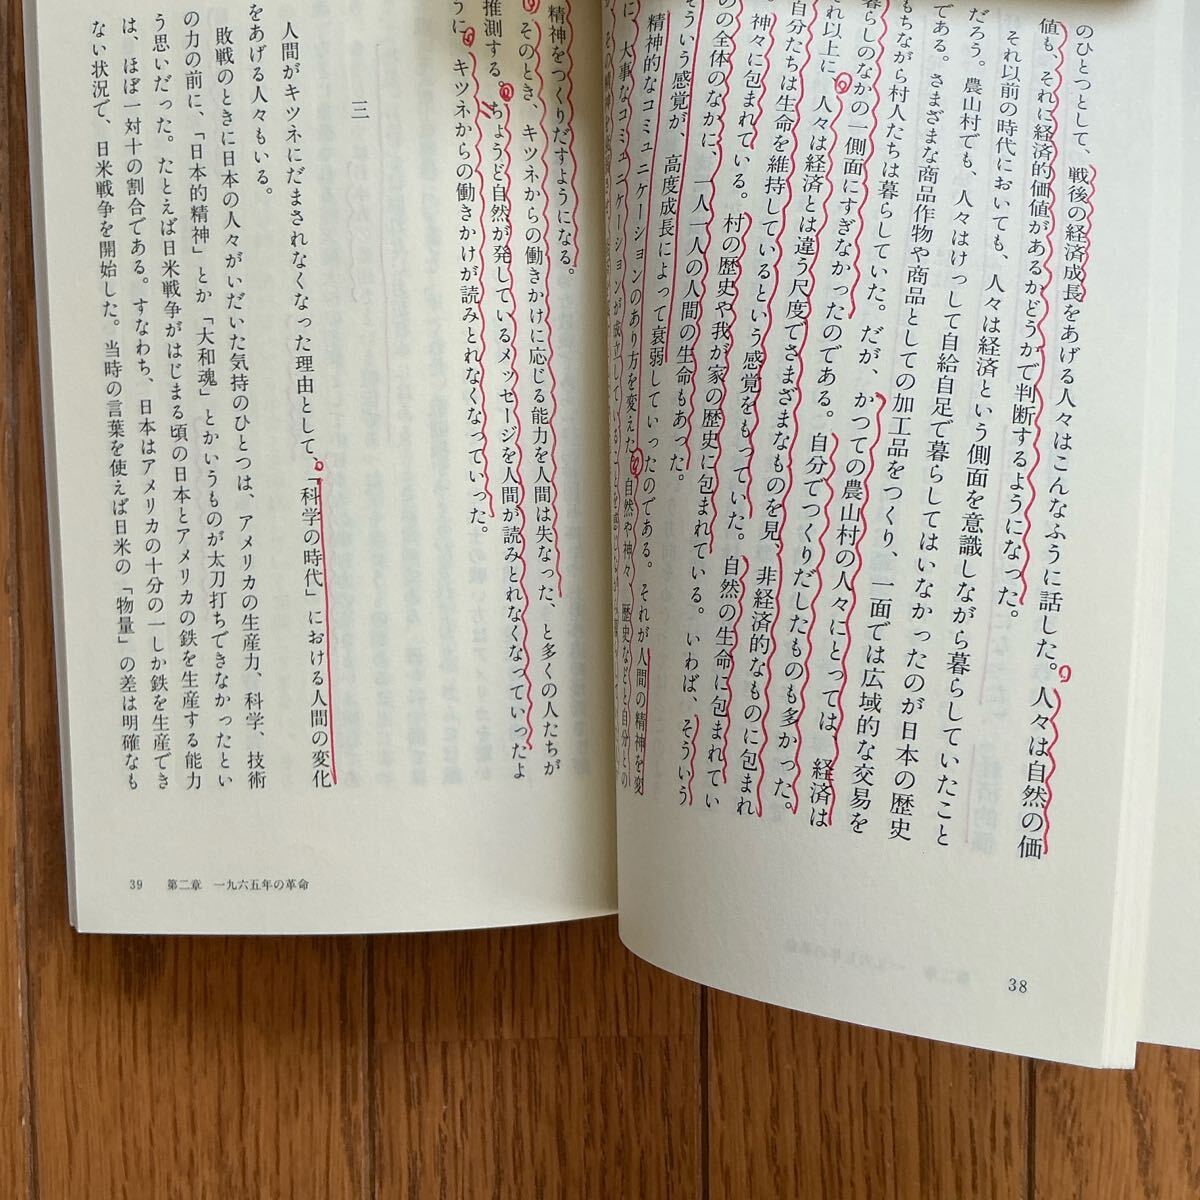 のひとつとして、戦後の経済成長をあげる人々はこんなふうに話した。人々は自然の価
値も、それに経済的価値があるかどうかで判断するようになった。
それ以前の時代においても、人々は経済という側面を意識しながら暮らしていたこと
だろう。農山村でも、人々はけっして自給自足で暮らしてはいなかったのが日本の歴史
である。さまざまな商品作物や商品としての加工品をつくり、一面では広域的な交易を
もちながら村人たちは暮らしていた。だが、かつての農山村の人々にとっては、経済は
暮らしのなかの一側面にすぎなかったのである。自分でつくりだしたものも多かった。
それ以上に、人々は経済とは違う尺度でさまざまなものを見、非経済的なものに包まれ
自分たちは生命を維持しているという感覚をもっていた。自然の生命に包まれてい
る。神々に包まれている。村の歴史や我が家の歴史に包まれている。いわば、そういう
ものの全体のなかに、一人一人の人間の生命もあった。
そういう感覚が、高度成長によって衰弱していったのである。それが人間の精神を変
精神的なコミュニケーションのあり方を変えた。自然や神々、歴史などと自分との
に、大事なコミュニケーションが成立していることを
精神をつくりだすようになる。
そのとき、キツネからの働きかけに応じる能力を人間は失なった、と多くの人たちが
推測する。ちょうど自然が発しているメッセージを人間が読みとれなくなっていったよ
うに、キツネからの働きかけが読みとれなくなっていった。
三
人間がキツネにだまされなくなった理由として、「科学の時代」における人間の変化
をあげる人々もいる。
敗戦のときに日本の人々がいだいた気持のひとつは、アメリカの生産力、科学、技術
の力の前に、「日本的精神」とか「大和魂」とかいうものが太刀打ちできなかったとい
う思いだった。たとえば日米戦争がはじまる頃の日本とアメリカの鉄を生産する能力
は、ほぼ一対十の割合である。すなわち、日本はアメリカの十分の一しか鉄を生産でき
ない状況で、日米戦争を開始した。当時の言葉を使えば日米の「物量」の差は明確なも
39 第二章 一九六五年の革命
38